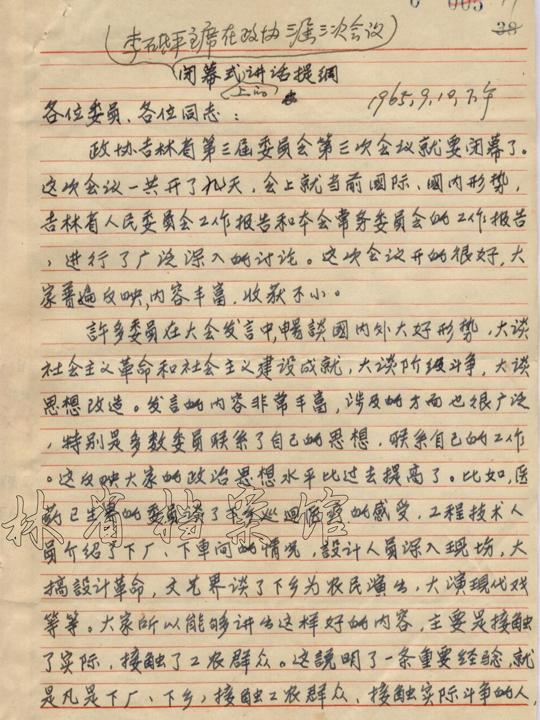 005
38
(李砥平主席在政协三届三次会议
闭幕式上的讲话提纲
1965.9.10.下午
各位委员、各位同志：
政协吉林省第三届委员会第三次会议就要闭幕了。
这次会议一共开了九天，会上就当前国际、国内形势，
吉林省人民委员会工作报告和本会常务委员会的工作报告
，进行了广泛深入的讨论。这次会议开的很好，大
家普遍反映，内容丰富，收获不小。
許多委员在大会发言中，暢談國内外大好形势，大谈
社会主义革命和社会主义建设成就，大谈阶级斗争，大谈
思想改造。发言的内容非常丰富，涉及的方面也很广泛
，特别是多数委员联系了自己的思想，联系自己的工作
。这反映大家的政治思想水平比过去提高了。比如，医
药卫生界的委员谈了下乡巡迴医疗的感受，工程技术人
员介绍了下厂、下車间的情况，設计人员深入现场，大
搞設计革命，文艺界谈了下乡为农民演出，大演现代戏
等等。大家所以能够讲出这样好的内容，主要是接触
了实际，接触了工农群众。这説明了一条重要经验，就
是凡是下厂、下乡，接触工农群众、接触实际斗争的人，
林省档案馆